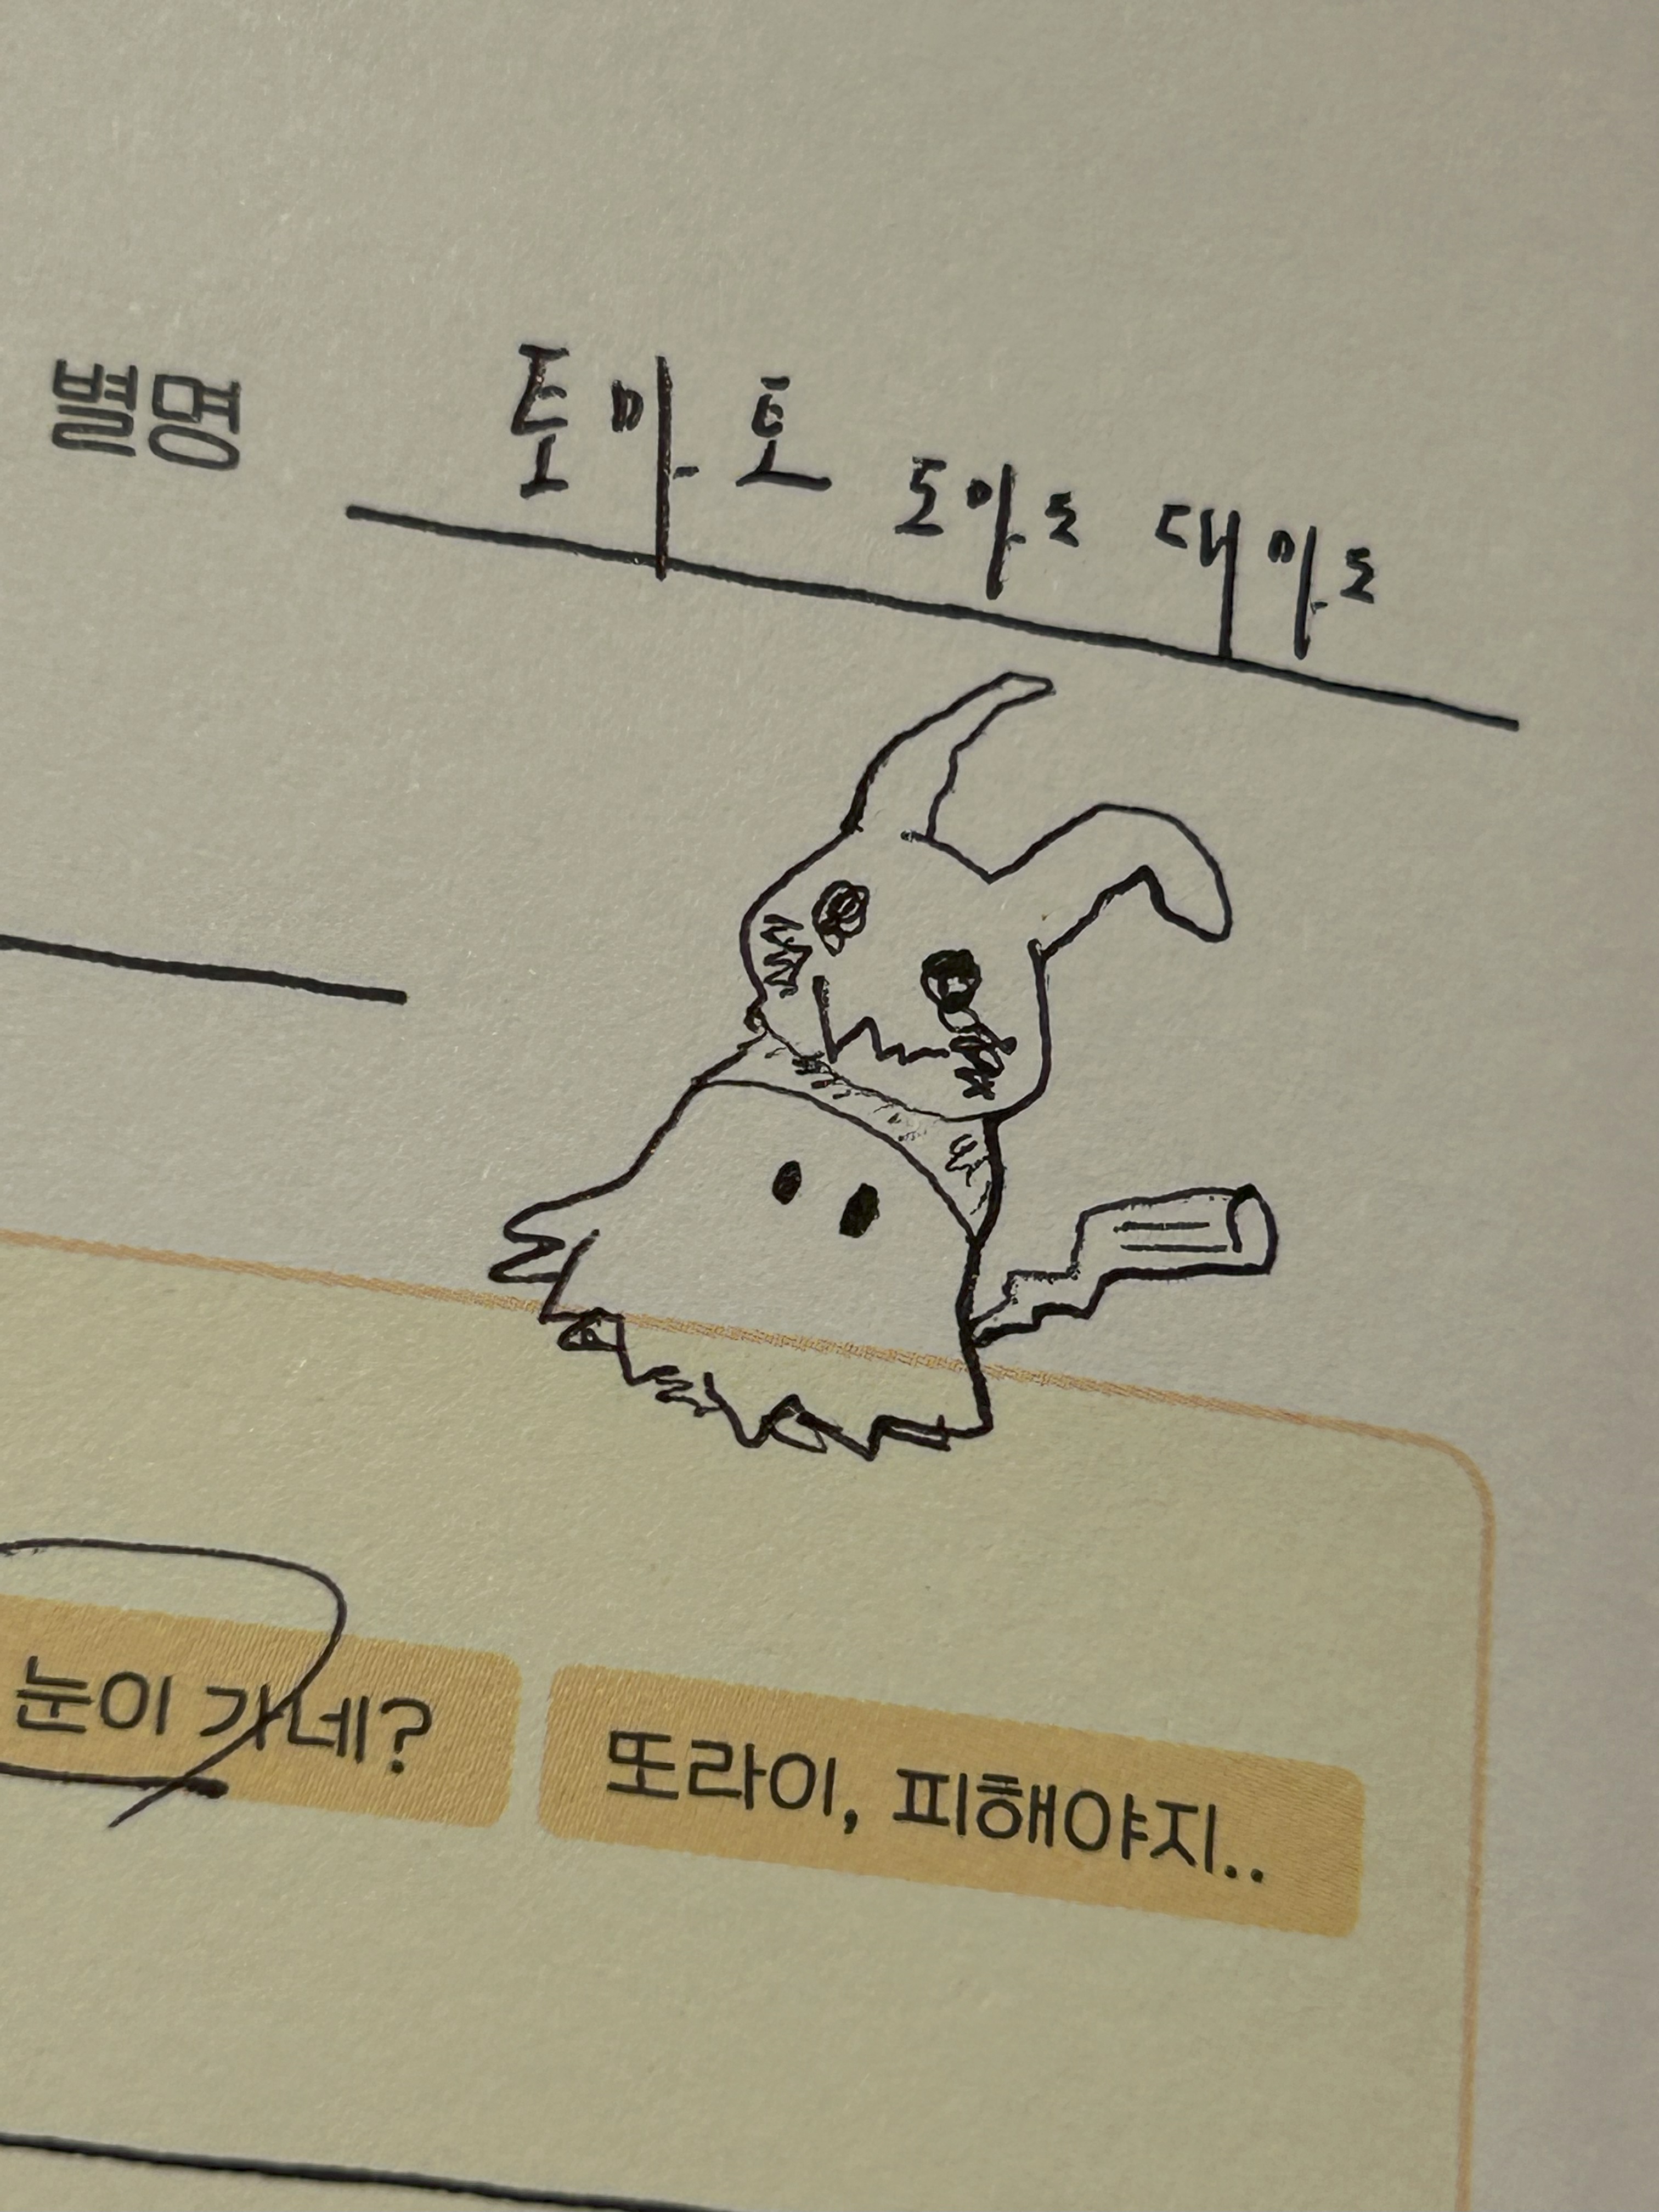 별명 토마토 도마도 대마도
눈이 가네?
또라이, 피해야지..